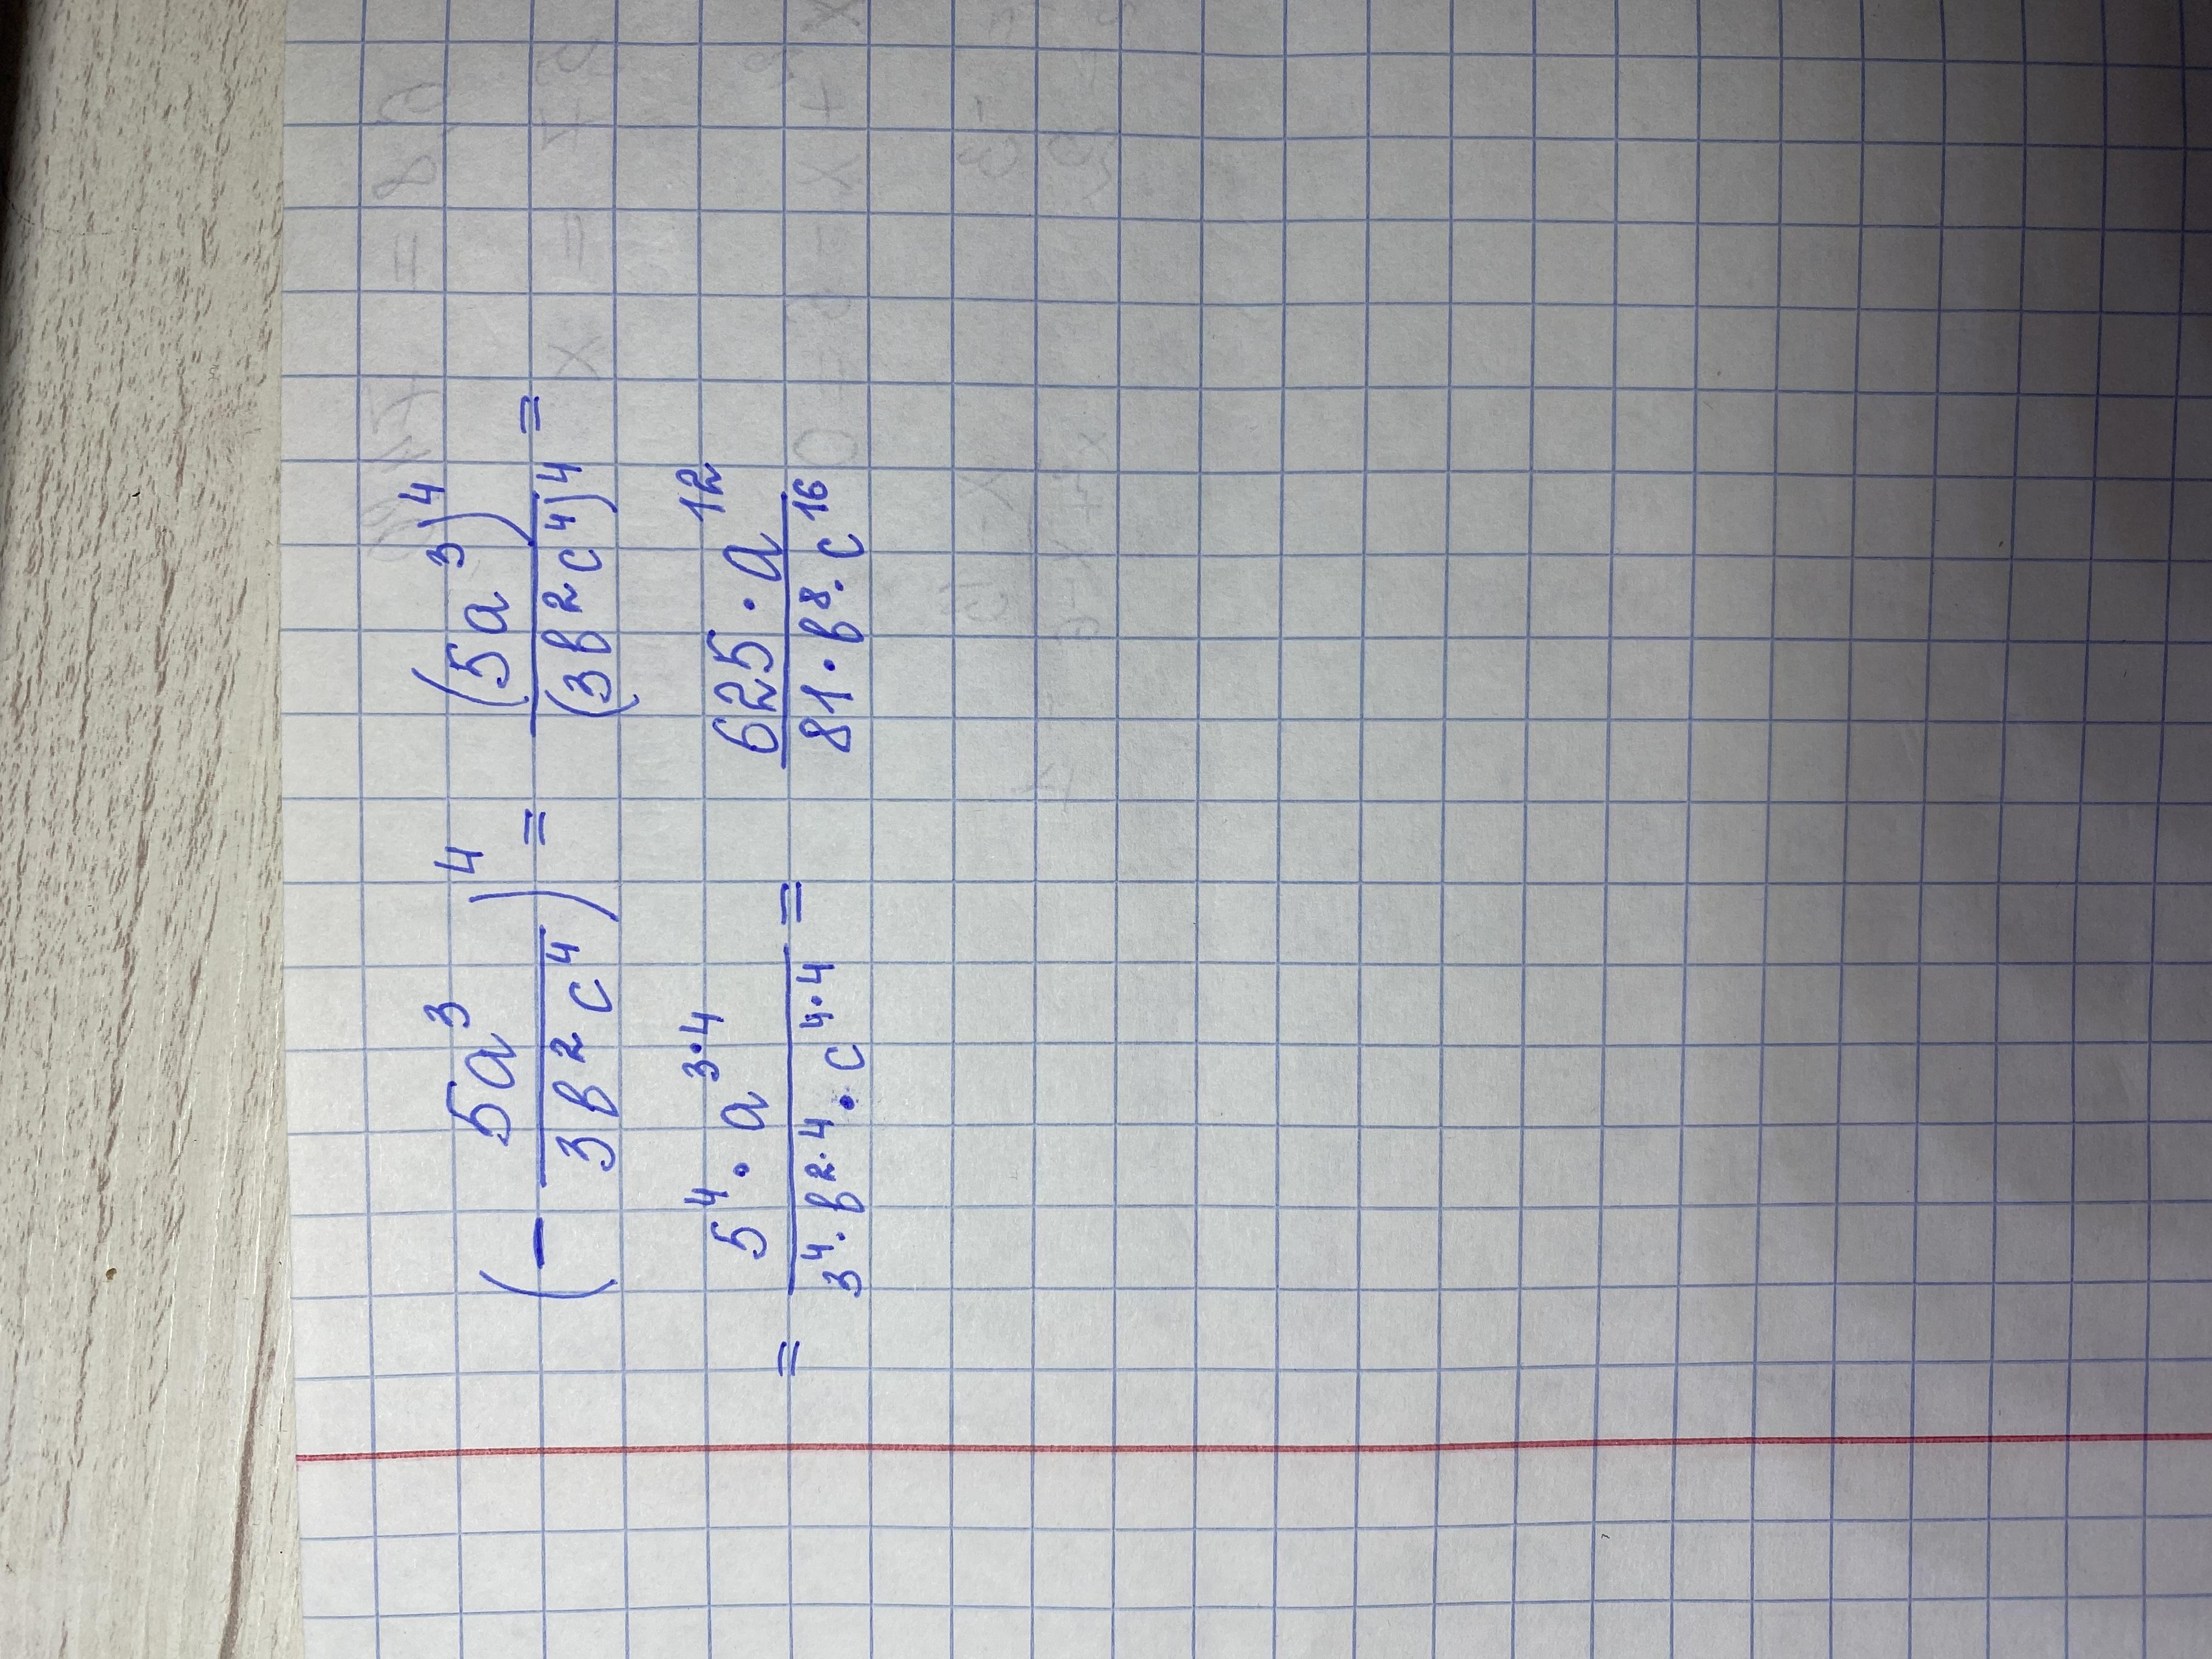 (- 5a³/3b²c⁴)⁴ = (5a³)⁴/(3b²c⁴)⁴ =
= 5⁴·a³·⁴/3⁴·b²·⁴·c⁴·⁴ = 625·a¹²/81·b⁸·c¹⁶